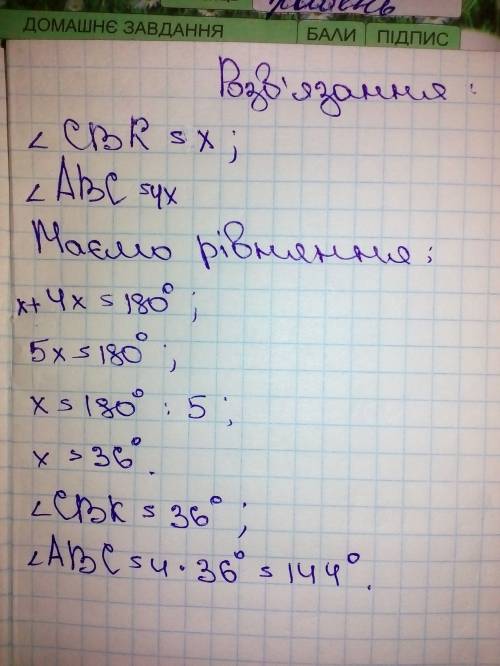 рівень
ДОМАШНЄ ЗАВДАННЯ БАЛИ ПІДПИС
Розв'язання:
∠CBK = x;
∠ABC = 4x
Маємо рівняння:
x + 4x = 180°;
5x = 180°;
x = 180° : 5;
x = 36°.
∠CBK = 36°;
∠ABC = 4 · 36° = 144°.